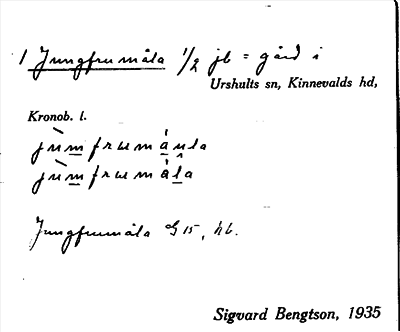 1 Jungfrumåla 1/2 jb = gård i
Urshults sn, Kinnevalds hd,
Kronob. l.
jùmfrumáula
jùmfrumåla
Jungfrumåla GS 15, hb.
Sigvard Bengtson, 1935